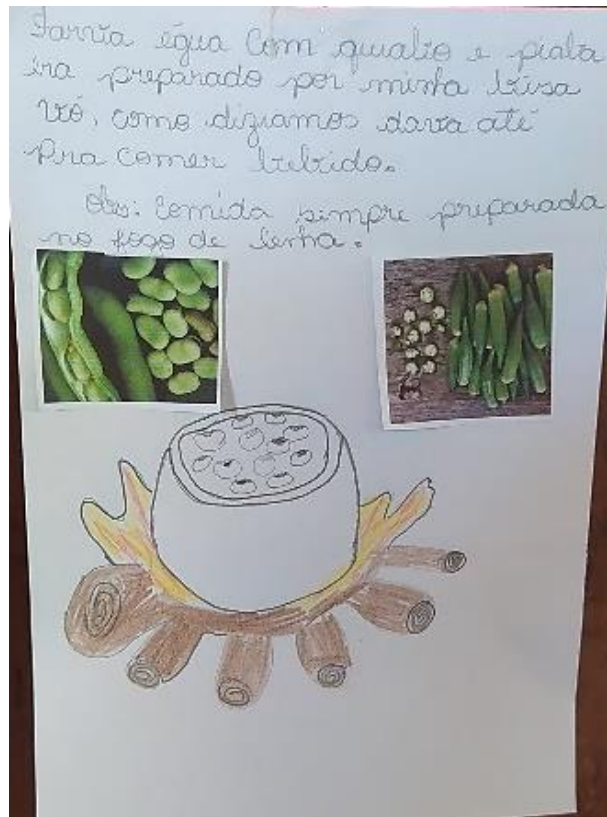 Farvia égua com quiabo e piaba
era preparado por minha bisa
vó, como diziamos dava até
pra comer bebido.
Obs: Comida sempre preparada
no fogo de lenha.